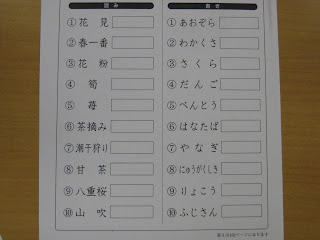 読み
①花見
②春一番
③花粉
④筍
⑤苺
⑥茶摘み
⑦潮干狩り
⑧甘茶
⑨八重桜
⑩山吹
書き
①あおぞら
②わかくさ
③さくら
④だんご
⑤べんとう
⑥はなたば
⑦やなぎ
⑧にゅうがくしき
⑨りょこう
⑩ふじさん